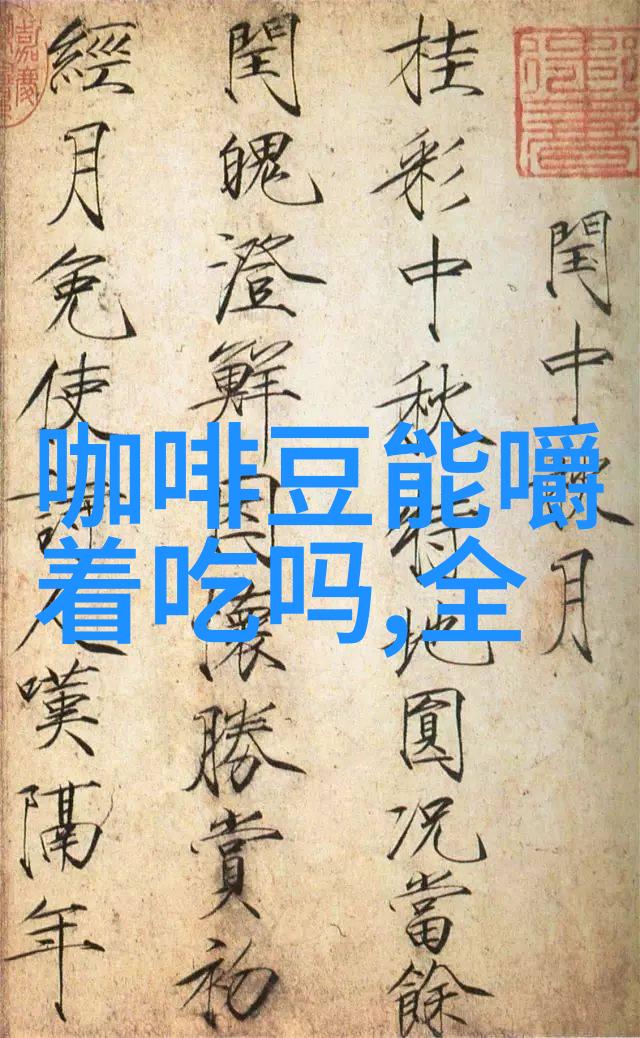 閏中秋月
桂彩中秋特地圓況當餘
閏魄澄鮮因懷勝賞初
經月免使詩人嘆隔年
咖啡豆能嚼
着吃吗,全